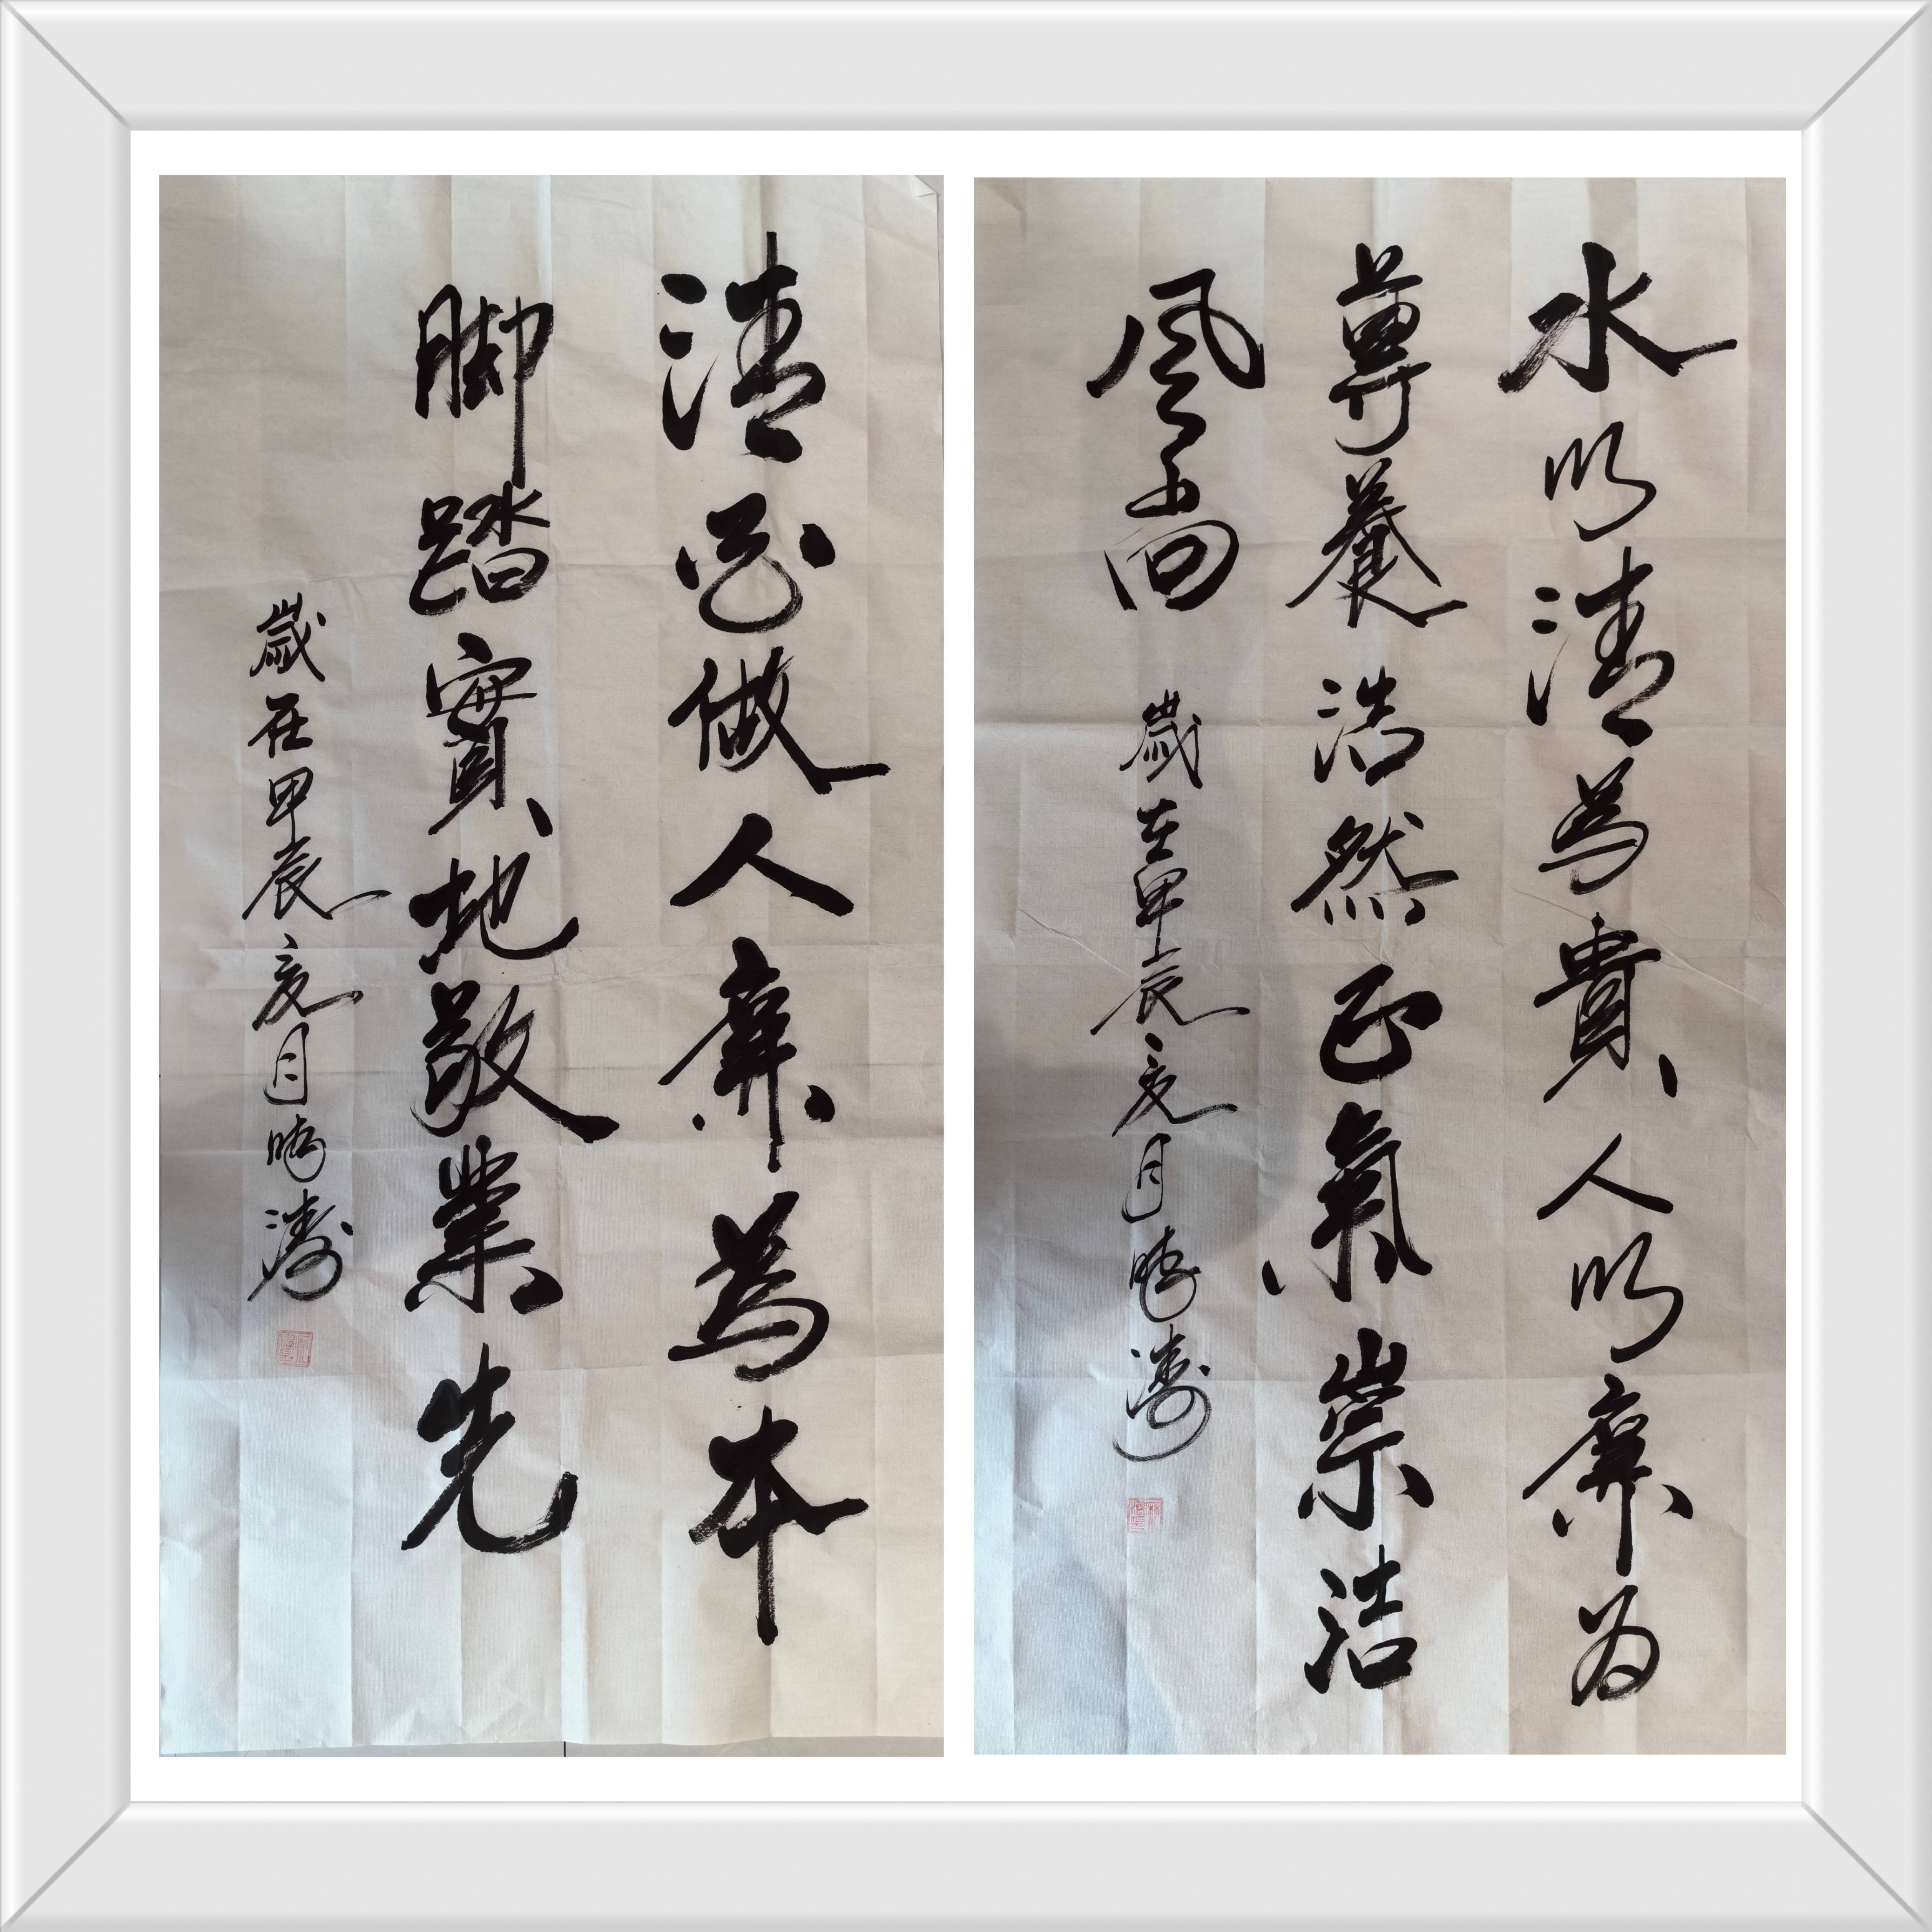 水以清為貴人以廉为
尊養浩然正氣崇洁
風尚
歲在甲辰亥月晓濤
清白做人廉為本
脚踏實地敬業先
歲在甲辰亥月晓濤